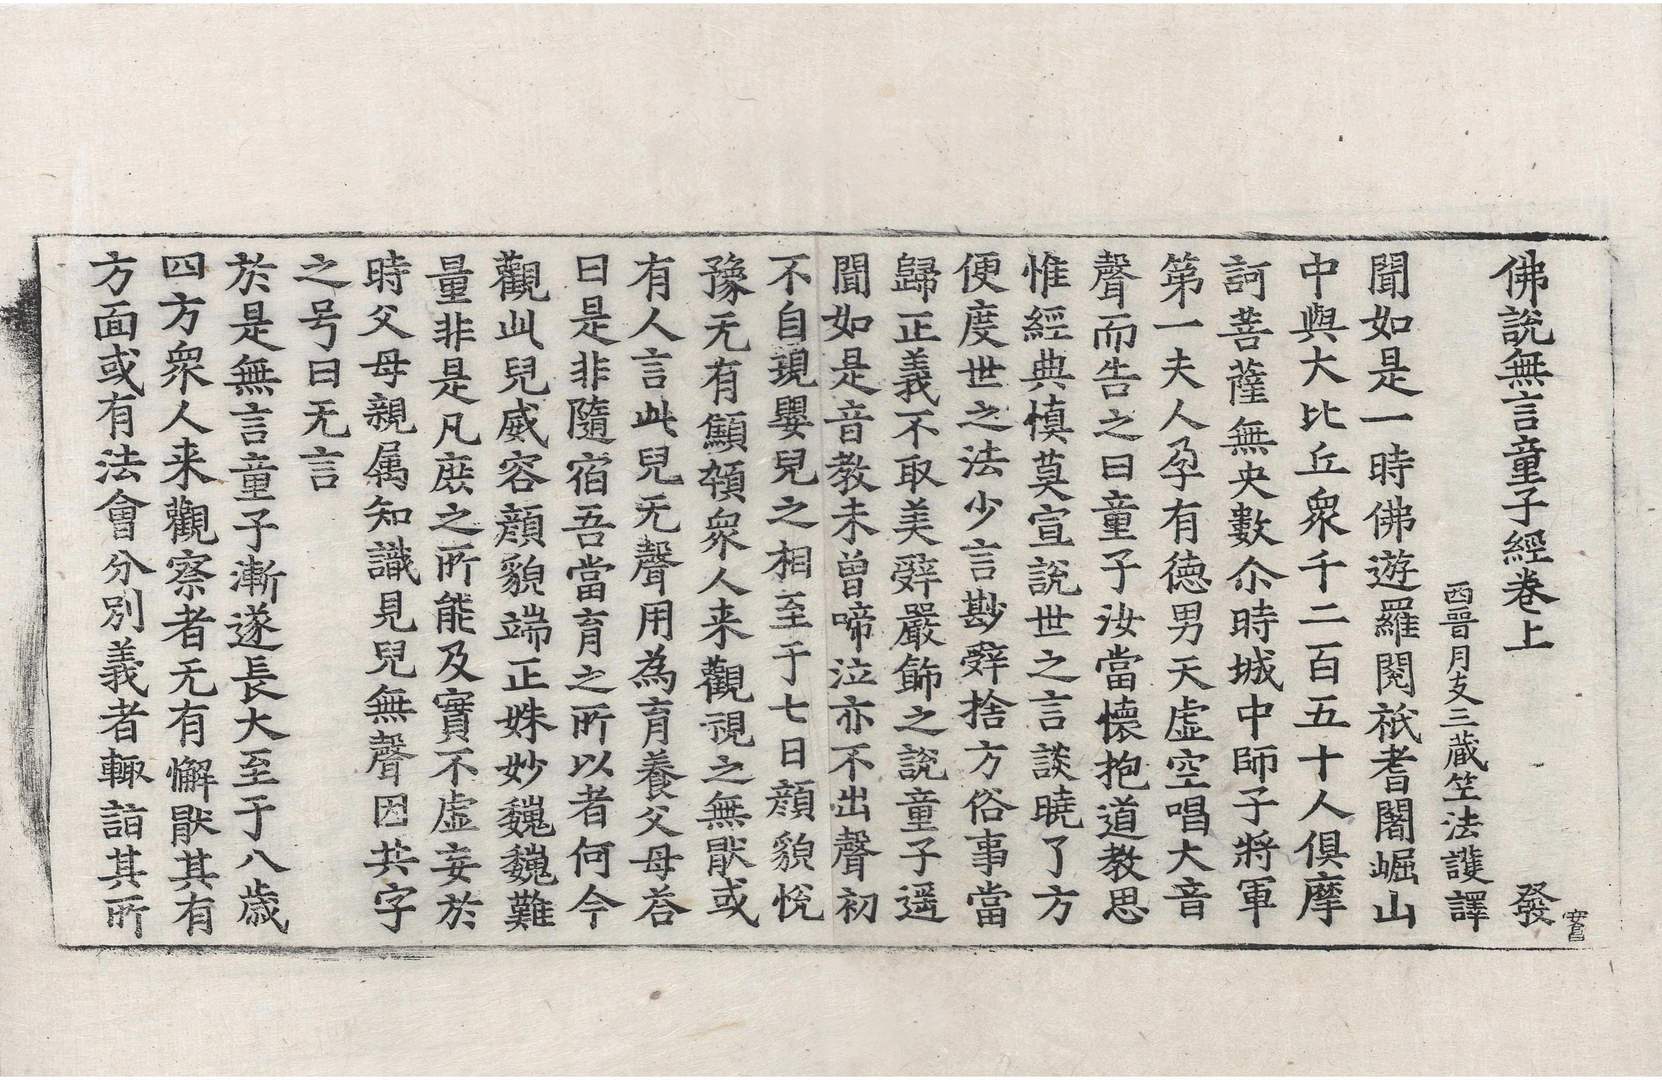 佛說無言童子經卷上 發
安㫯
西晉月支三藏竺法護譯
聞如是一時佛遊羅閱祇耆闍崛山
中與大比丘衆千二百五十人俱摩
訶菩薩無央數尒時城中師子將軍
第一夫人孕有德男天虚空唱大音
聲而告之曰童子汝當懷抱道教思
惟經典慎莫宣說世之言談曉了方
便度世之法少言尠辤捨方俗事當
歸正義不取美辤嚴飾之說童子遥
聞如是音教未曾啼泣亦不出聲初
不自現嬰兒之相至于七日顔貌悅
豫无有顦頓衆人来觀視之無猒或
有人言此兒无聲用為育養父母荅
曰是非隨宿吾當育之所以者何今
觀此兒威容顔貌端正姝妙巍巍難
量非是凡庶之所能及實不虚妄於
時父母親属知識見兒無聲因共字
之号曰无言
於是無言童子漸遂長大至于八歳
四方衆人来觀察者无有懈猒其有
方面或有法會分別義者輙詣其所